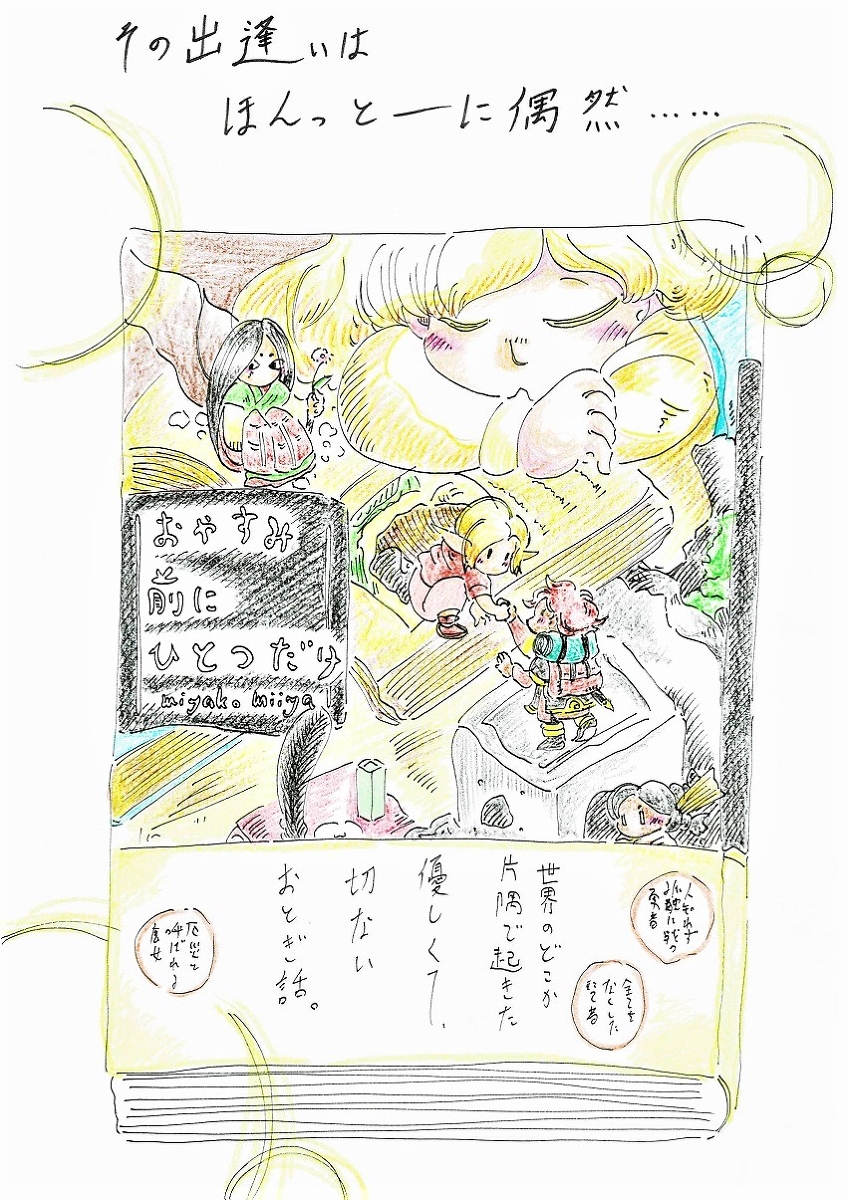 その出逢いは
ほんっとーに偶然……
おやすみ
前に
ひとつだけ
miyako.miiya
世界のどこか
片隅で起きた
優しくて、
切ない
おとぎ話。
人知れず
孤独に戦う
勇者
全てを
なくした
厄災と
呼ばれる